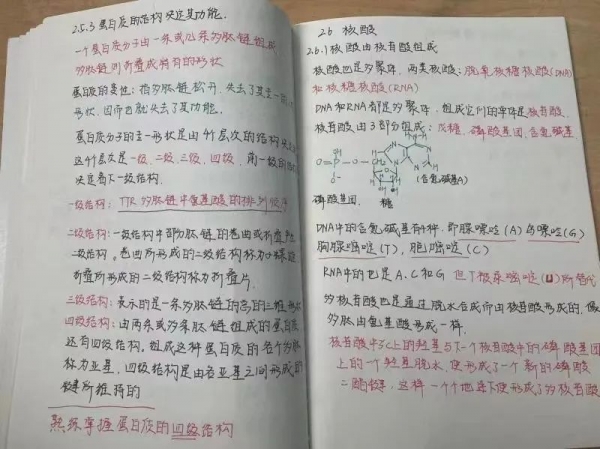 2.5.3 蛋白质的结构决定其功能.
一个蛋白质分子由一条或几条多肽链组成
多肽链则折叠成特有的形状
蛋白质的变性: 指多肽链松开, 失去了其
形状, 因而也就失去了其功能.
蛋白质分子的 形状是由4个层次的结构
这4个层次是一级、二级、三级、四级. 前一级的
决定着下一级结构.
一级结构: TTR 多肽链中氨基酸的排列顺序
二级结构: 一级结构中部分肽链的卷曲或折叠
二级结构。卷曲所形成的二级结构称为
折叠所形成的二级结构称为折叠片.
三级结构: 表示的是一条多肽链的总的三维形
四级结构: 由两条或多条肽链组成的蛋白质
还有四级结构, 组成这种蛋白质的各个多肽
称为亚基, 四级结构是由各亚基之间形成的
键所维持的
熟练掌握蛋白质的四级结构
2.6 核酸
2.6.1 核酸由核苷酸组成
核酸也是多聚体. 两类核酸: 脱氧核糖核酸(DNA)
和核糖核酸(RNA)
DNA和RNA都是多聚体, 组成它们的单体是核苷酸.
核苷酸由3部分组成: 戊糖、磷酸基团、含氮碱基
(含氮碱基A)
磷酸基团. 糖
DNA中的含氮碱基有4种. 即腺嘌呤(A) 鸟嘌呤(G)
胸腺嘧啶(T), 胞嘧啶(C)
RNA中的也是A、C和G 但T被尿嘧啶(U)所替代
多核苷酸也是通过脱水合成而由核苷酸形成的. 像
多肽由氨基酸形成一样.
核苷酸中3'C上的羟基与下一个核苷酸中的磷酸基团
上的一个羟基脱水, 便形成了一个新的磷酸
二酯键. 这样一个个地连下便形成了多核苷酸